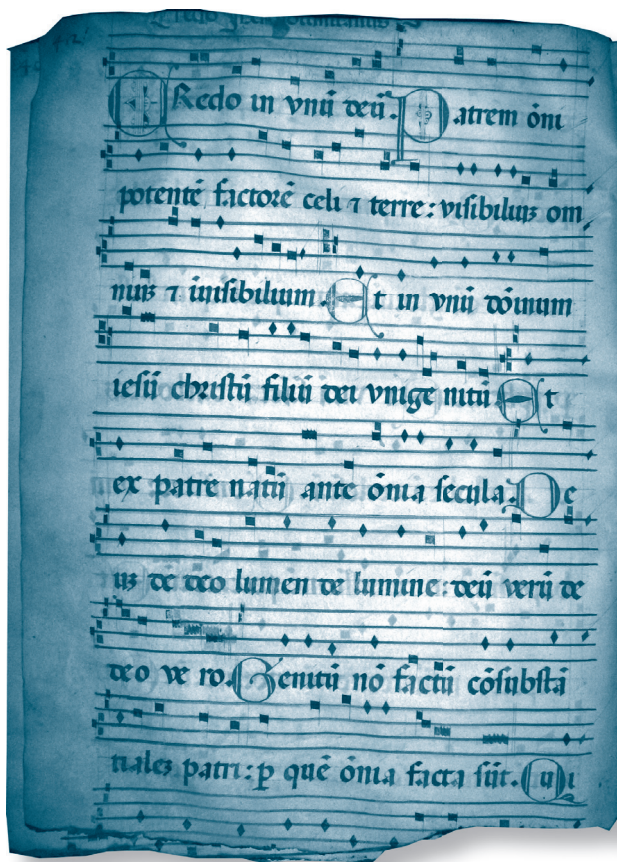 CRedo in vnū deū. Patrem ōni
potentē factorē celi ⁊ terre: visibiliuꝫ om
niuꝫ ⁊ inuisibilium. Et in vnū dōinum
iesū christū filiū dei vnige nitū Et
ex patre natū ante ōnia secula. De
uꝫ de deo lumen de lumine: deū verū de
deo ve ro. Genitū nō factū cōsubstā
tialez patri: ꝑ quē ōnia facta sūt. Qui